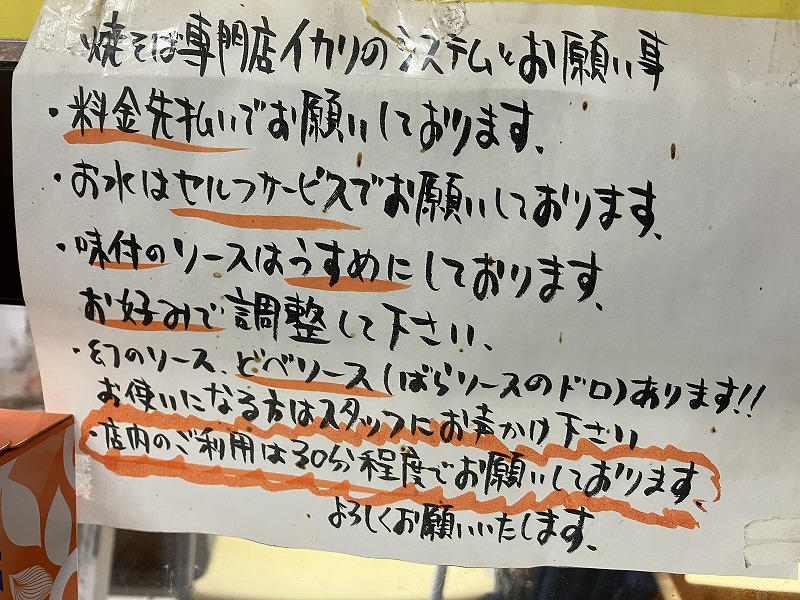 焼そば専門店イカリのシステムとお願い事
・料金先払いでお願いしております、
・お水はセルフサービスでお願いしております、
・味付のソースはうすめにしております、
お好みで調整して下さい、
・幻のソース、どべソース(ばらソースのドロ)あります!!
お使いになる方はスタッフにお声かけ下さい
・店内のご利用は30分程度でお願いしております、
よろしくお願いいたします、